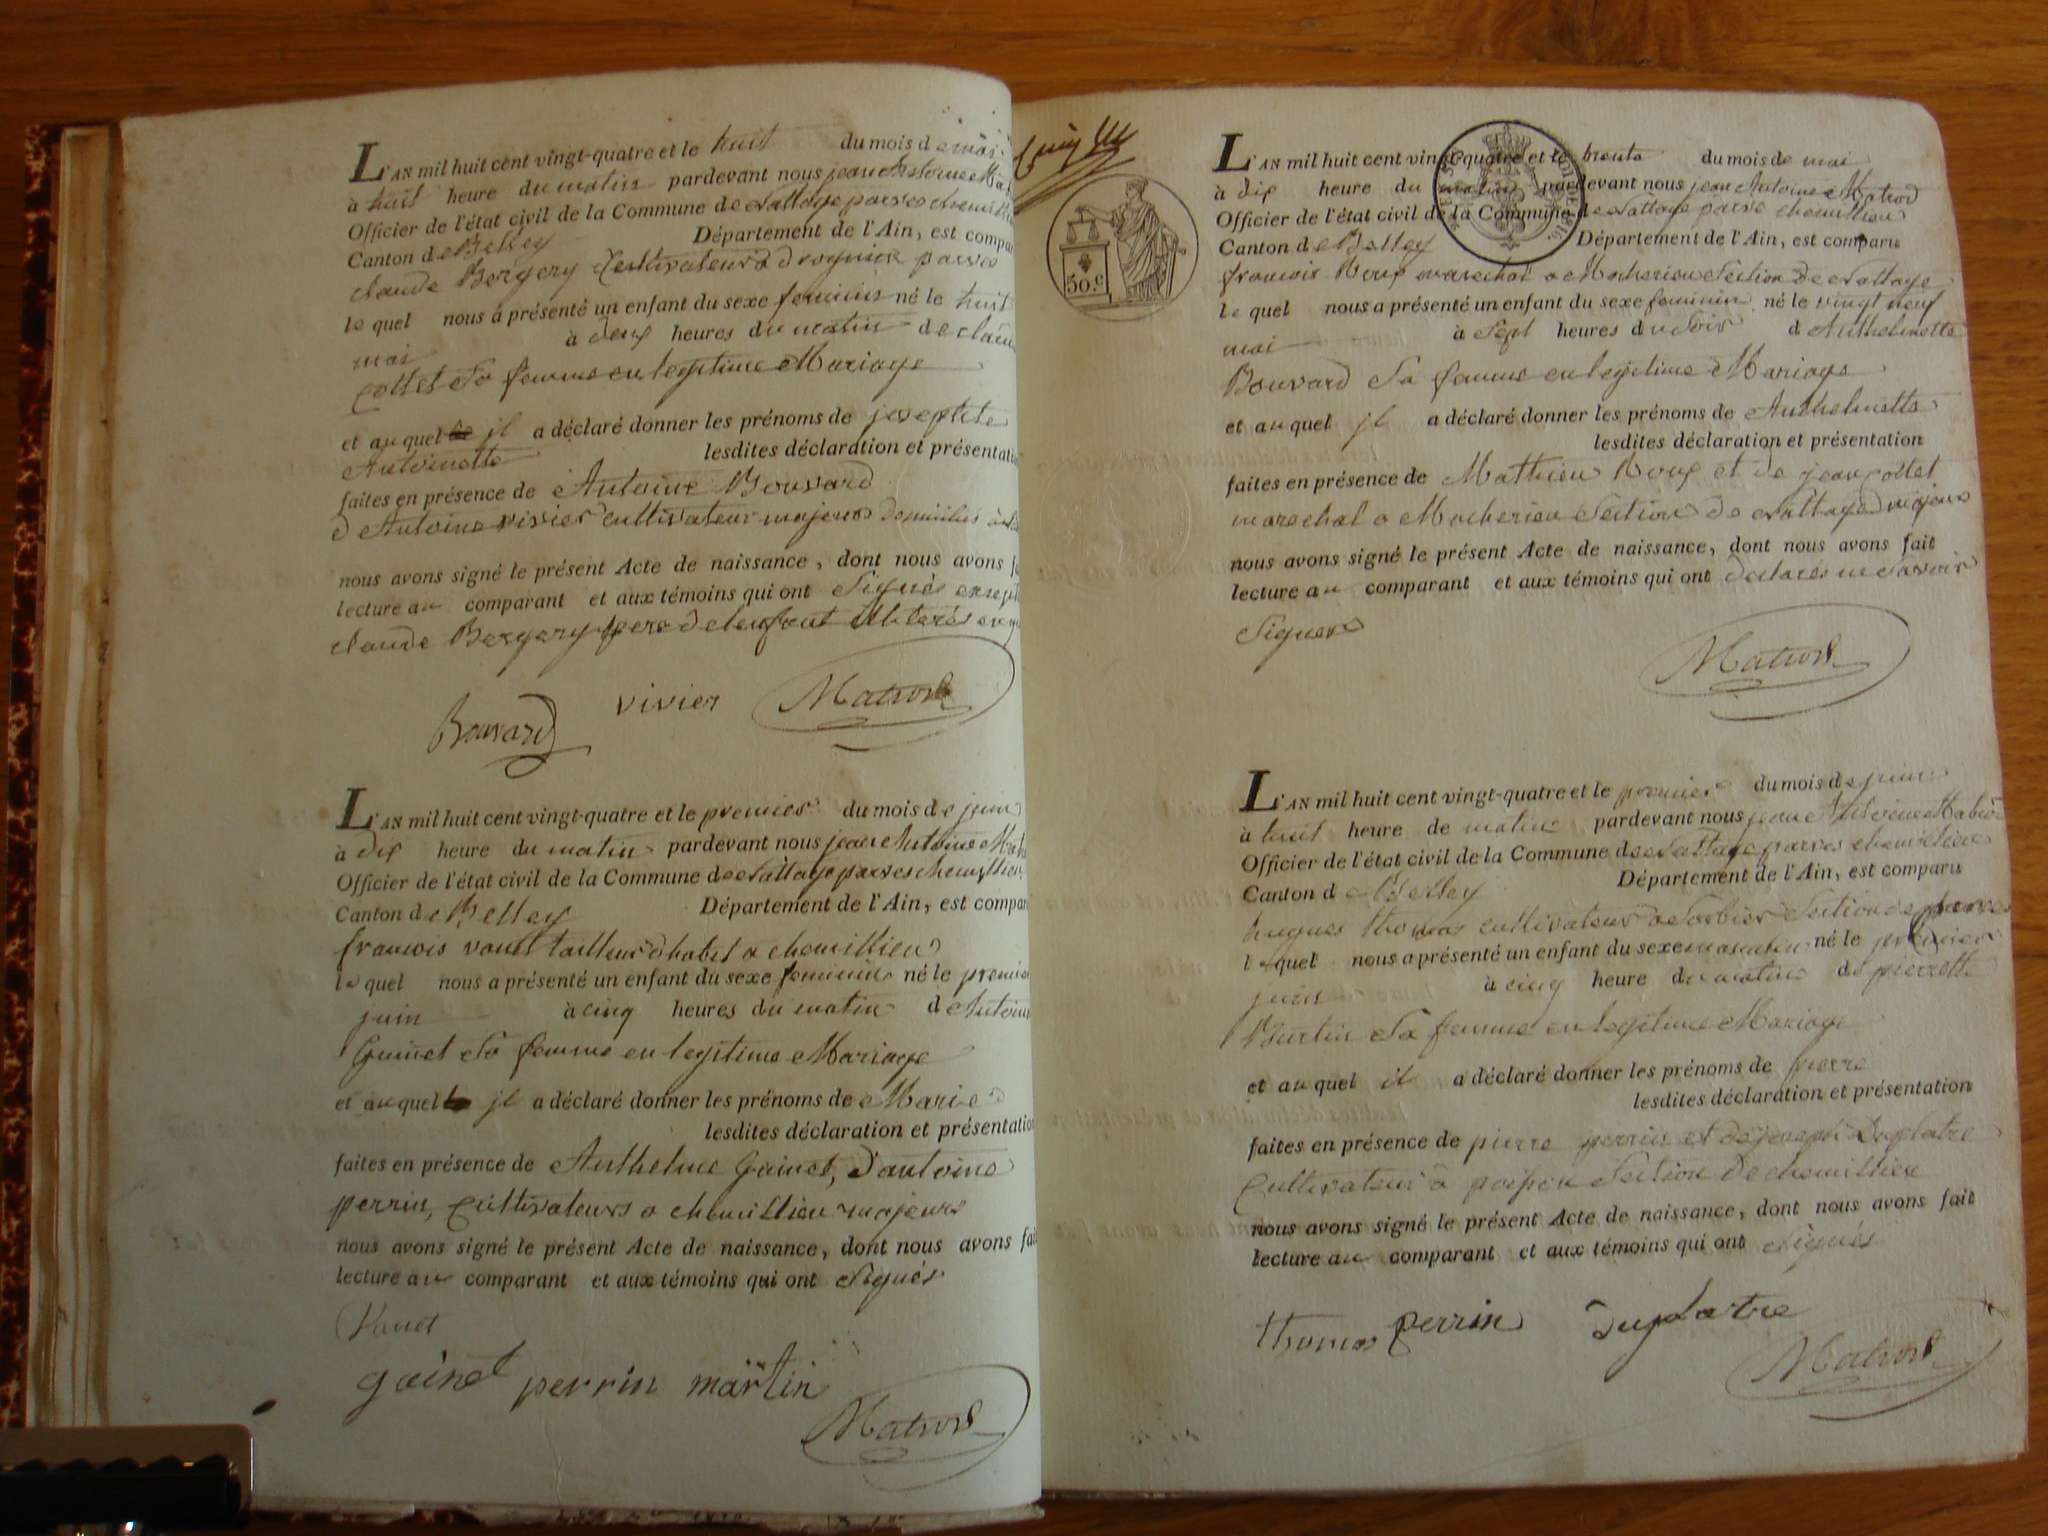 L'AN mil huit cent vingt-quatre et le huit du mois de mai
à huit heure du matin pardevant nous jean Antoine
Officier de l'état civil de la Commune de Nattage parves chemillieu
Canton de Belley Département de l'Ain, est compar
claude Bergery cultivateur à parves
le quel nous a présenté un enfant du sexe feminin né le huit
mai à deux heures du matin de claud
collet sa femme en legitime Mariage
et au quel il a déclaré donner les prénoms de josephte
Antoinette lesdites déclaration et présentatio
faites en présence de Antoine Bouvard
d Antoine vivier cultivateur majeurs domiciliés
nous avons signé le présent Acte de naissance, dont nous avons f
lecture au comparant et aux témoins qui ont signés
claude Bergery pere de lenfant
Bouvard vivier Matrod
L'AN mil huit cent vingt-quatre et le premier du mois de juin
à dix heure du matin pardevant nous jean Antoine
Officier de l'état civil de la Commune de Nattage parves chemillieu
Canton de Belley Département de l'Ain, est compar
francois vouet tailleur d habit a chemillieu
le quel nous a présenté un enfant du sexe feminin né le premie
juin à cinq heures du matin d Antoin
Guinet sa femme en legitime Mariage
et au quel il a déclaré donner les prénoms de Marie
lesdites déclaration et présentatio
faites en présence de Anthelme Gainet, d'antoine
perrin, Cultivateurs a chemillieu majeurs
nous avons signé le présent Acte de naissance, dont nous avons fai
lecture au comparant et aux témoins qui ont signés
Vouet
gainet perrin martin
Matrod
50 c
L'AN mil huit cent vingt-quatre et le trente du mois de mai
à dix heure du matin pardevant nous jean Antoine Matrod
Officier de l'état civil de la Commune de Nattage parve chemillieu
Canton de Belley Département de l'Ain, est comparu
francois Roux marechal a Macherieu Section de Nattage
le quel nous a présenté un enfant du sexe feminin né le vingt neuf
mai à Sept heures du Soir d Anthelmette
Bouvard Sa femme en legitime Mariage
et au quel jl a déclaré donner les prénoms de Anthelmette
lesdites déclaration et présentation
faites en présence de Mathieu Roux et de jean collet
marechal a Macherieu Section de Nattage majeurs
nous avons signé le présent Acte de naissance, dont nous avons fait
lecture au comparant et aux témoins qui ont declarés ne Savoir
Signer
Matrod
L'AN mil huit cent vingt-quatre et le premier du mois de juin
à huit heure de matin pardevant nous jean Antoine Matrod
Officier de l'état civil de la Commune de Nattage parves chemillieu
Canton de Belley Département de l'Ain, est comparu
hugues thomas cultivateur a Sorbier Section de parves
le quel nous a présenté un enfant du sexe masculin né le premier
juin à cinq heure du matin de pierrette
Burtin Sa femme en legitime Mariage
et au quel il a déclaré donner les prénoms de pierre
lesdites déclaration et présentation
faites en présence de pierre perrin et de joseph Duplatre
Cultivateur à Section de chemillieu
nous avons signé le présent Acte de naissance, dont nous avons fait
lecture au comparant et aux témoins qui ont Signés
thomas perrin duplatre
Matrod